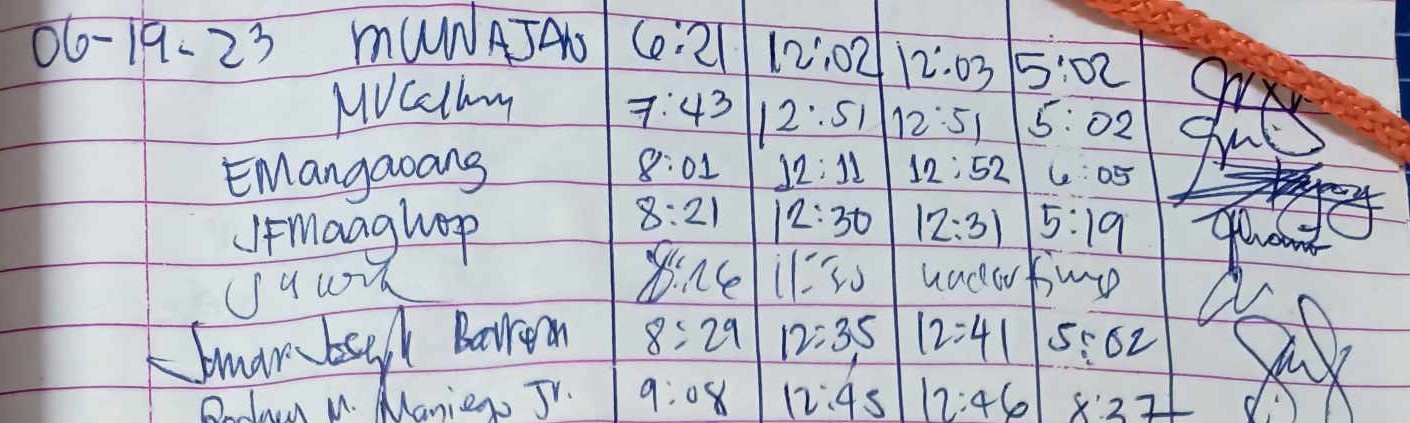 06-19-23 MUNAJAN 6:21 12:02 12:03 5:02
7:43 12:51 12:51 5:02
EMangaoang 8:01 12:11 12:52 6:05
JFMaaghop 8:21 12:30 12:31 5:19
8:26 11:30 undertime
Jomar Joseph 8:29 12:35 12:41 5:02
Rodney M. Maniego Jr. 9:08 12:45 12:46 8:37